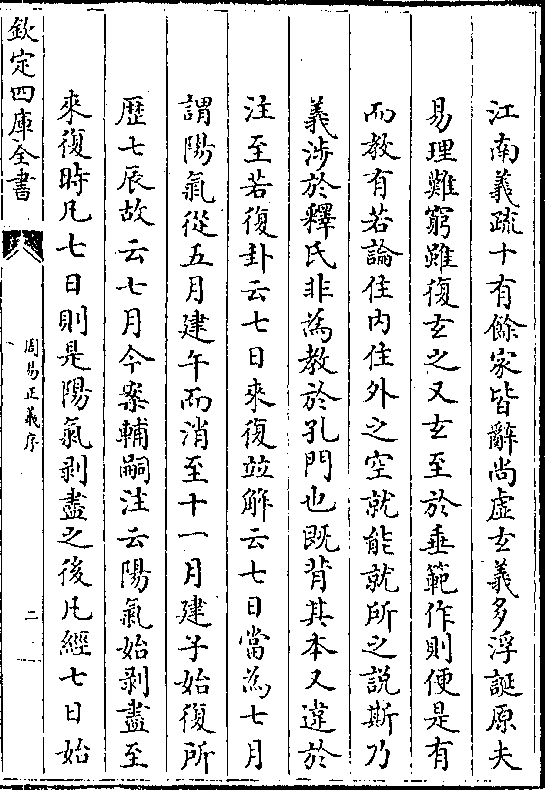 江南義疏十有餘家皆辭尚虛玄義多浮誕原夫
易理難窮雖復玄之又玄至於垂範作則便是有
而教有若論住內住外之空就能就所之說斯乃
義涉於釋氏非為教於孔門也既背其本又違於
注至若復卦云七日來復並解云七日當為七月
謂陽氣從五月建午而消至十一月建子始復所
歴七辰故云七月今案輔嗣注云陽氣始剥盡至
來復時凡七日則是陽氣剥盡之後凡經七日始
欽定四庫全書
周易正義序
二